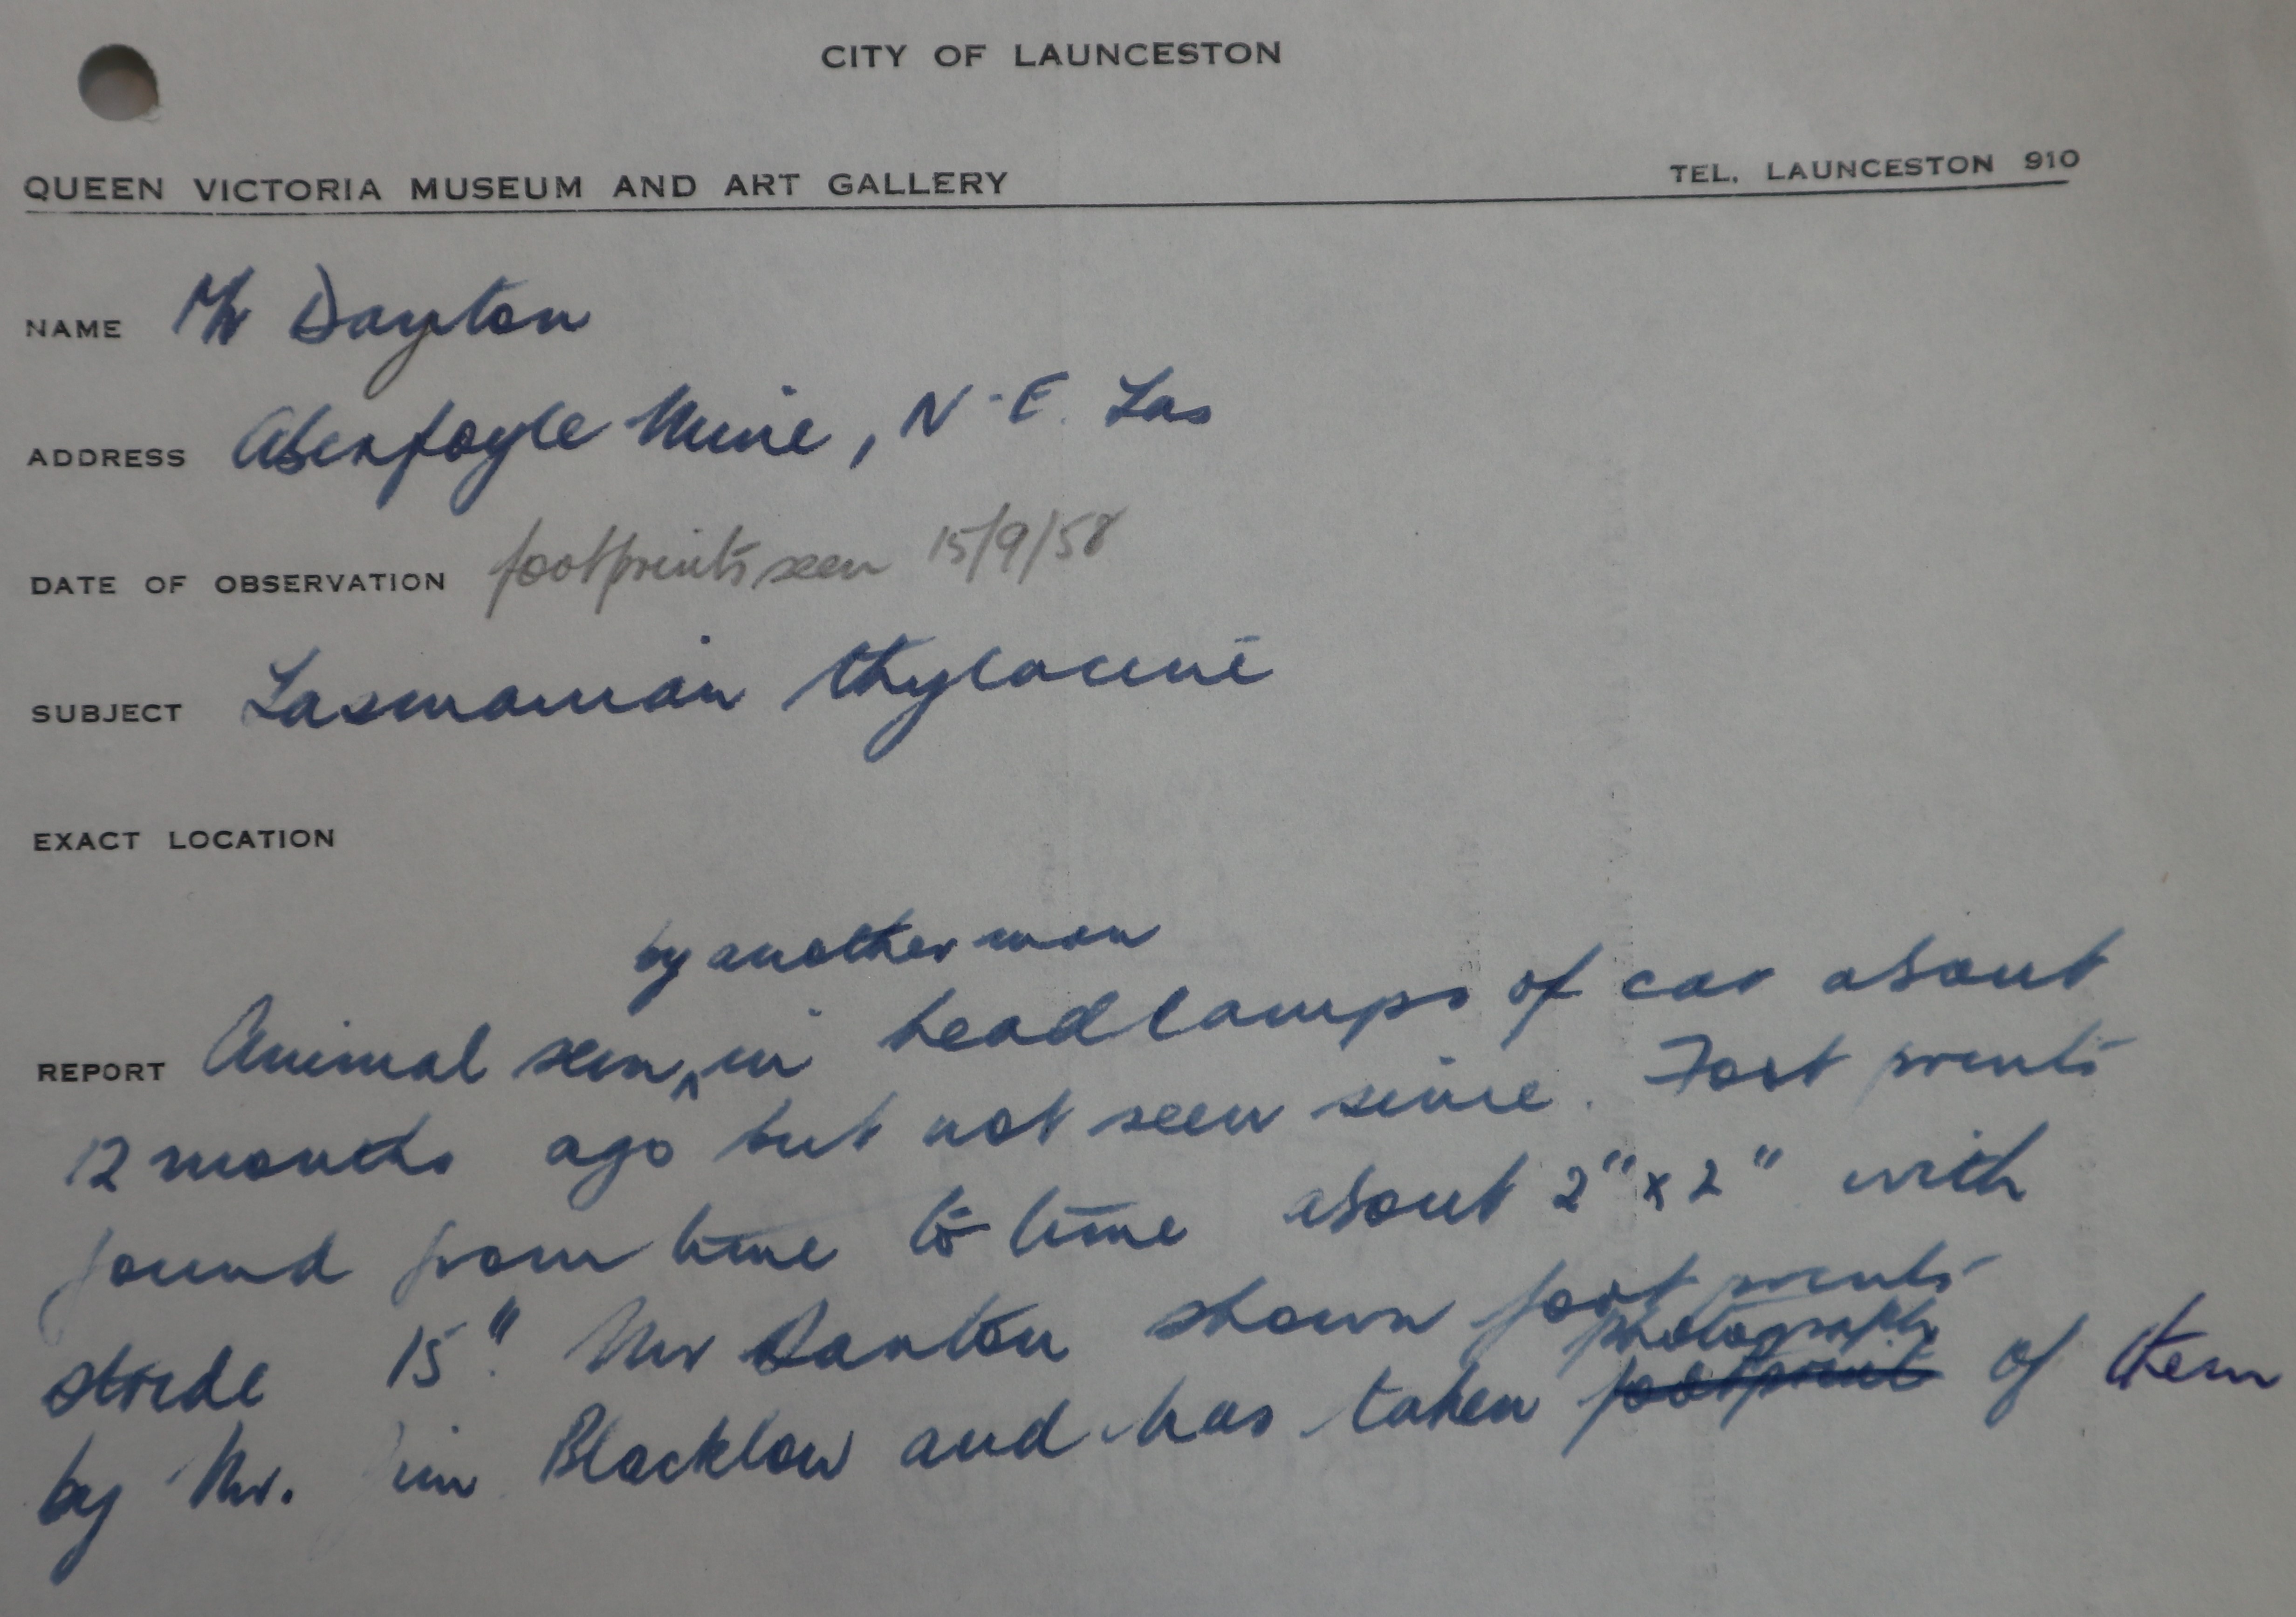 CITY OF LAUNCESTON
QUEEN VICTORIA MUSEUM AND ART GALLERY TEL. LAUNCESTON 910
NAME Mr Dayton
ADDRESS Aberfoyle Mine, N.E. Tas
DATE OF OBSERVATION footprints seen 15/9/58
SUBJECT Tasmanian thylacine
EXACT LOCATION
by another man
REPORT Animal seen ^ in head lamps of car about
12 months ago but not seen since. Foot prints
found from time to time about 2" x 2" with
stride 15". Mr shown foot prints
photographs
by Mr. Jim Blacklow and has taken footprint of them